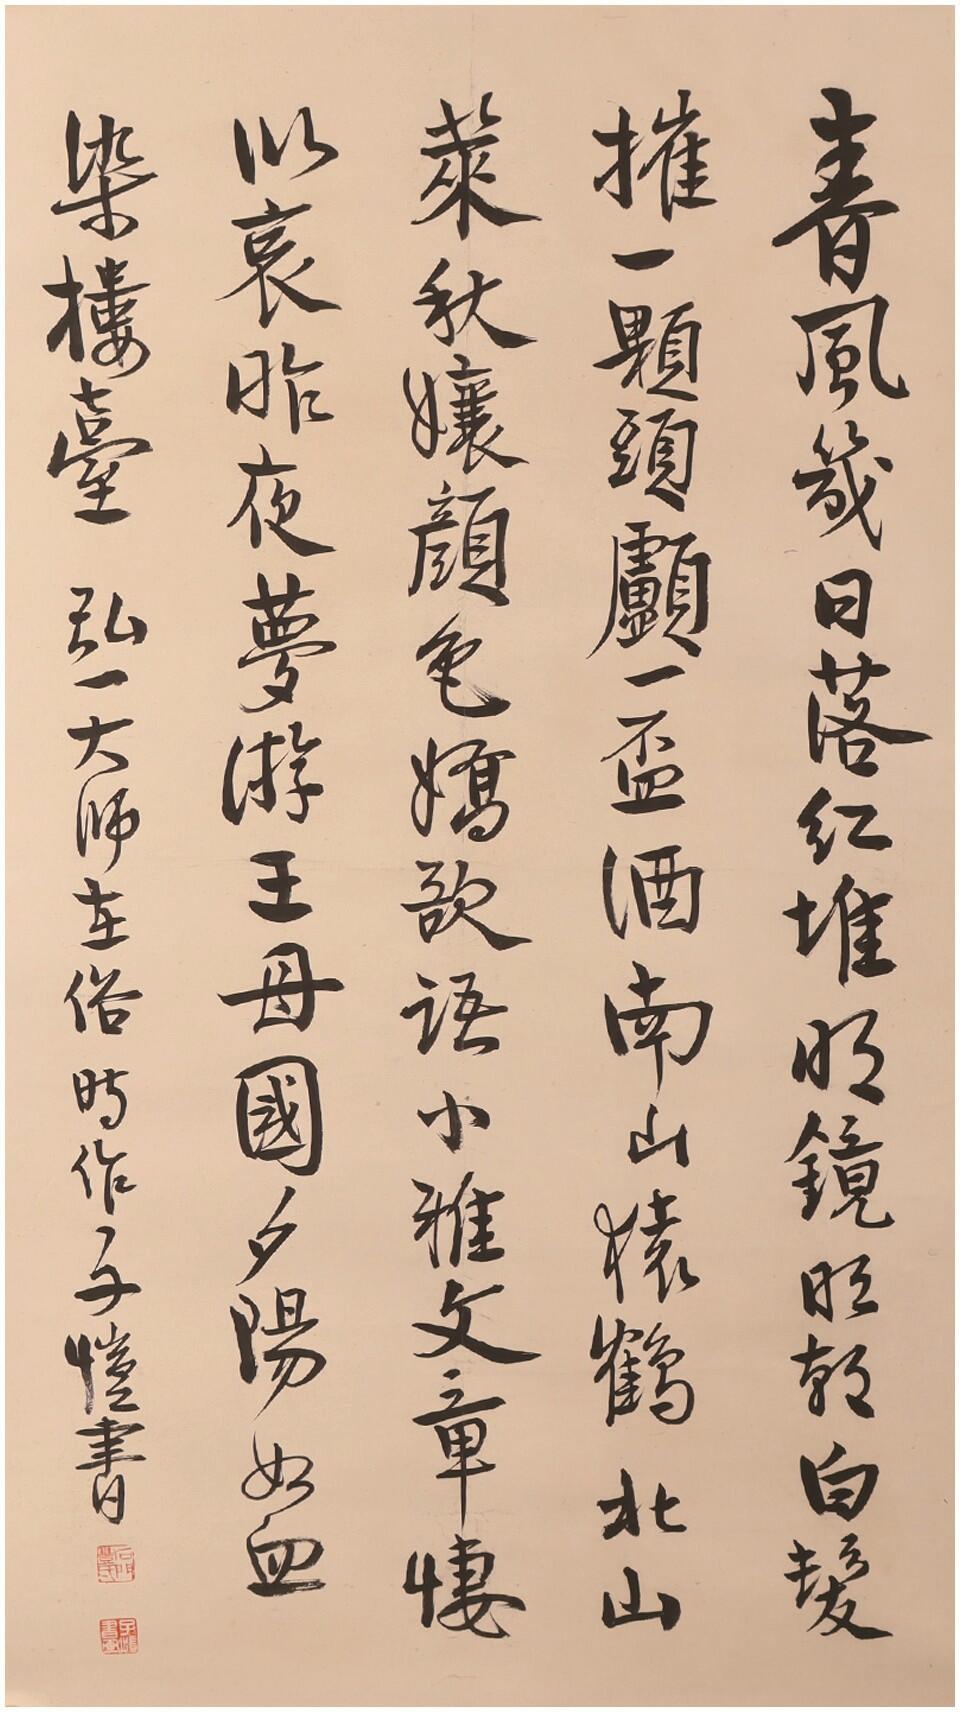 春風幾日落紅堆明鏡明朝白髮
摧一顆頭顱一盃酒南山猿鶴北山
萊秋孃顏色嬌欲語小雅文章悽
以哀昨夜夢游王母國夕陽如血
染樓臺 弘一大師在俗時作子愷書